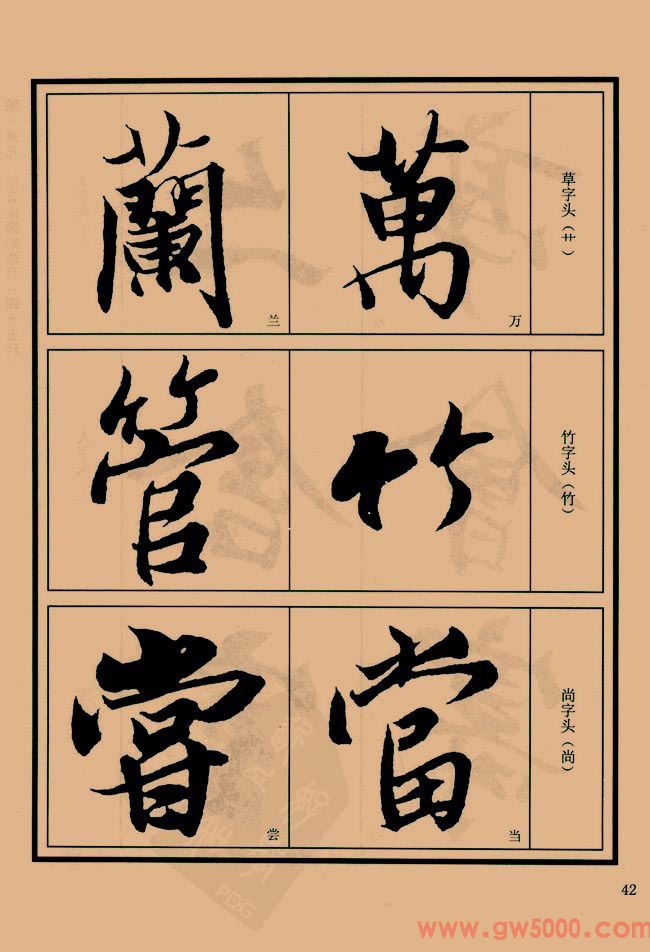 草字头（艹）
萬
万
蘭
兰
竹字头（竹）
竹
管
尚字头（尚）
當
当
嘗
尝
42
www.gw5000.com
PDG